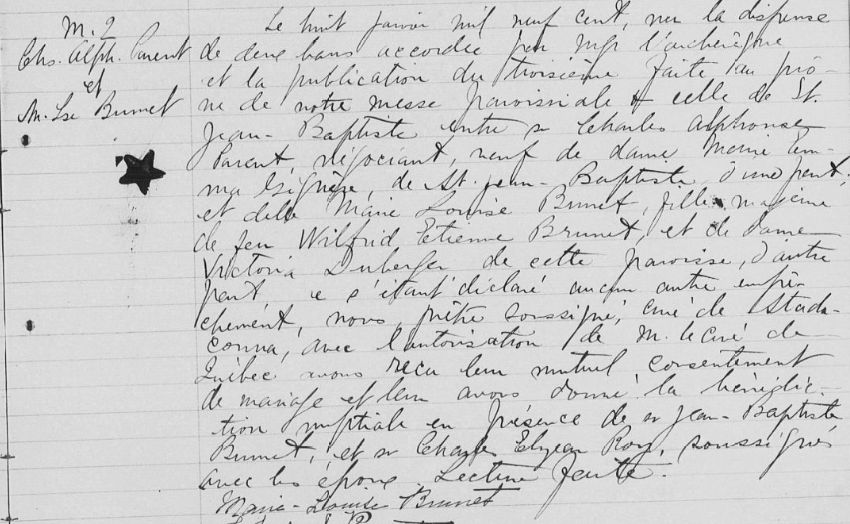 M. 2
Chs. Alph. Parent
et
M. Lse Brunet
Le huit janvier mil neuf cent, vu la dispense
de deux bans accordée par Mgr l'archevêque
et la publication du troisième faite au prô-
ne de notre messe paroissiale & celle de St.
Jean-Baptiste entre sr Charles Alphonse
Parent, négociant, veuf de dame Marie Em-
ma de St. Jean-Baptiste, d'une part;
et delle Marie Louise Brunet, fille majeure
de feu Wilfrid Etienne Brunet, et de dame
Victoria Duberger de cette paroisse, d'autre
part, ne s'étant déclaré aucun autre empê-
chement, nous, prêtre soussigné, curé de Stada-
conna, avec l'autorisation de M. le Curé de
Québec avons reçu leur mutuel consentement
de mariage et leur avons donné la bénédic-
tion nuptiale en présence de sr Jean-Baptiste
Brunet, et sr Charles Elzear Roy, soussignés
avec les époux. Lecture faite.
Marie-Louise Brunet